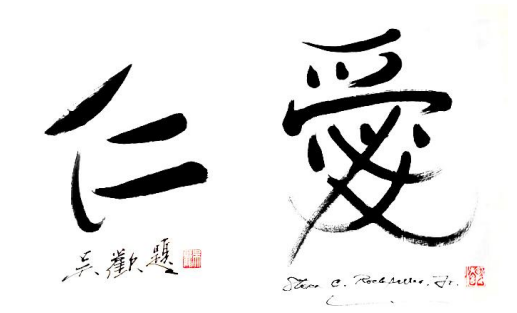 仁
吳歡題
愛
Steven C. Rockefeller, Jr.